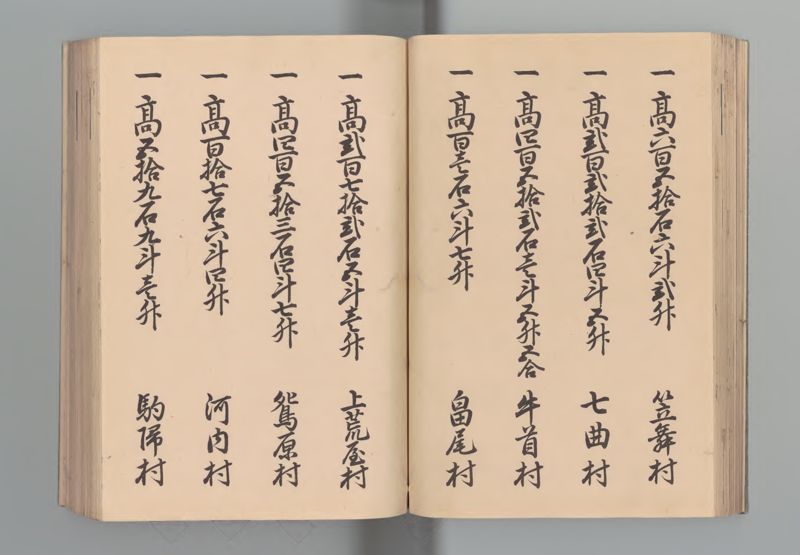 一高六百五拾石六斗弐升 笠舞村
一高弐百弐拾弐石四斗五升 七曲村
一高四百五拾弐石壱斗五升五合 牛首村
一高百壱石六斗七升 畠尾村
一高弐百七拾弐石五斗壱升 上荒屋村
一高四百五拾三石四斗七升 鴛原村
一高百拾七石六斗四升 河内村
一高五拾九石九斗壱升 駒帰村